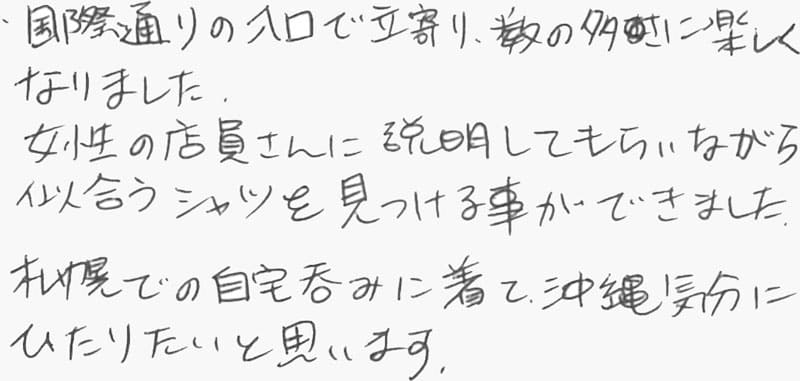 ・国際通りの入口で立寄り、数の多さに楽しく
なりました.
女性の店員さんに説明してもらいながら
似合うシャツを見つける事ができました.
札幌での自宅呑みに着て、沖縄気分に
ひたりたいと思います.